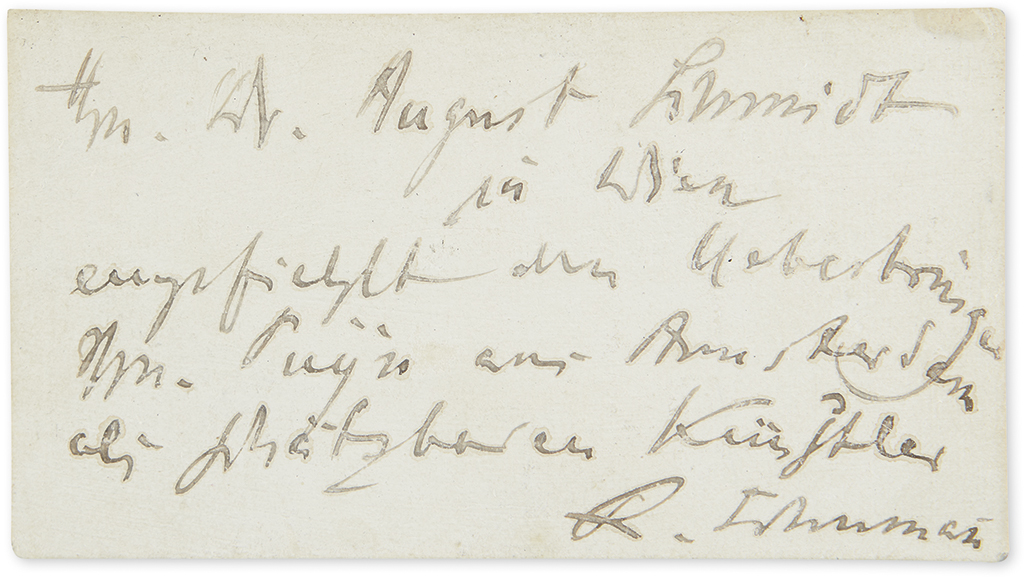 Hrn. Dr. August Schmidt
in Wien
empfiehlt den Ueberbringer
Hrn. Tuÿn aus Amsterdam
als schätzbaren Künstler
R. Schumann